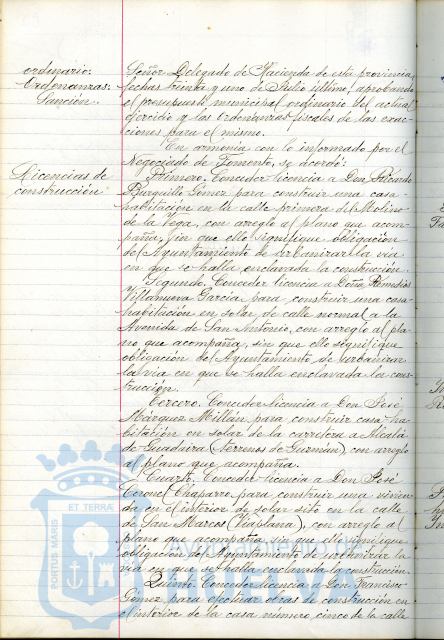 ordinario:
Ordenanzas:
Sanción.
Señor Delegado de Hacienda de esta provincia,
fechas treinta y uno de Julio último, aprobando
el presupuesto municipal ordinario del actual
ejercicio y las Ordenanzas fiscales de las exac-
ciones para el mismo.
En armonía con lo informado por el
Negociado de Fomento, se acordó:
Licencias de
construcción
Primero. Conceder licencia a Don Ricardo
Burguillo Gómez para construir una casa-
habitación en la calle primera del Molino
de la Vega, con arreglo al plano que acom-
paña, sin que ello signifique obligación
del Ayuntamiento de urbanizar la vía
en que se halla enclavada la construcción.
Segundo. Conceder licencia a Doña Remedios
Villanueva García para construir una casa-
habitación en solar de calle normal a la
Avenida de San Antonio, con arreglo al pla-
no que acompaña, sin que ello signifique
obligación del Ayuntamiento de urbanizar
la vía en que se halla enclavada la cons-
trucción.
Tercero. Conceder licencia a Don José
Márquez Millán, para construir casa-ha-
bitación en solar de la carretera a Alcalá
de Guadaira (Terrenos de Guzmán), con arreglo
al plano que acompaña.
Cuarto. Conceder licencia a Don José
Coronel Chaparro para construir una vivien-
da en el interior de solar sito en la calle
de San Marcos (Viaplana), con arreglo al
plano que acompaña sin que ello signifique
obligación del Ayuntamiento de urbanizar la
vía en que se halla enclavada la construcción
Quinto. Conceder licencia a Don Francisco
Gómez para efectuar obras de construcción en
el interior de la casa número cinco de la calle
PORTUS MARIS
ET TERRÆ